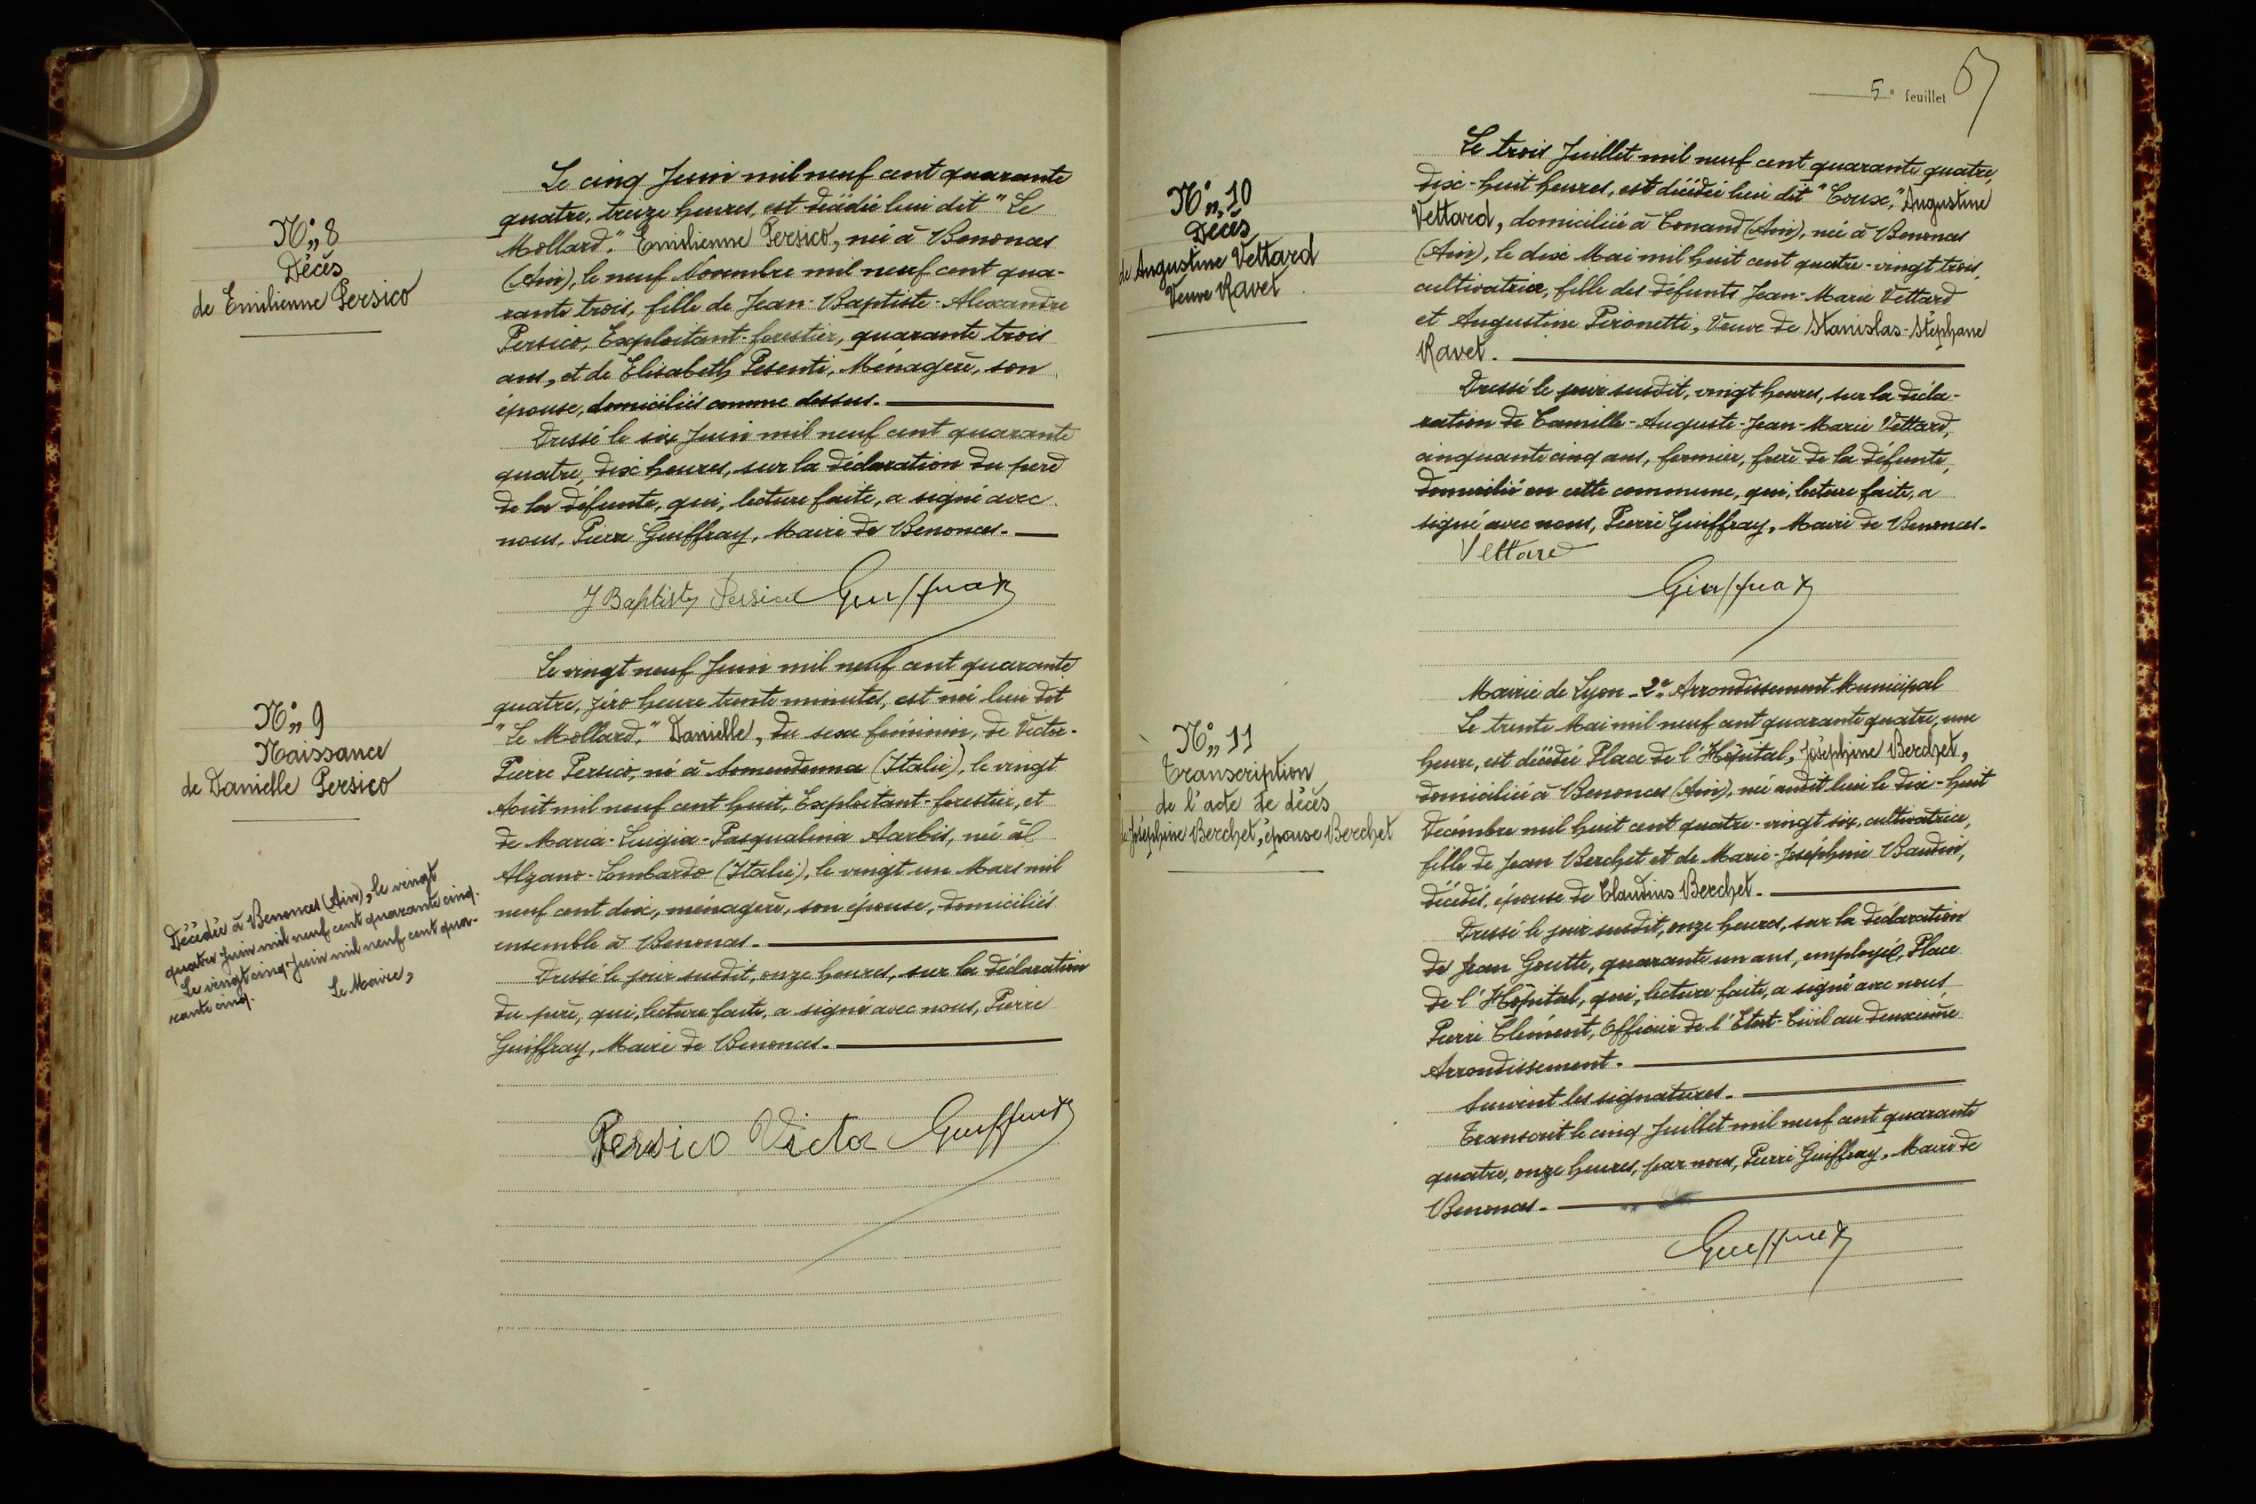 N°8
Décès
de Emilienne Persico
Le cinq Juin mil neuf cent quarante
quatre, treize heures, est décédée lieu dit "Le
Mollard." Emilienne Persico, née à Benonces
(Ain), le neuf Novembre mil neuf cent qua-
rante trois, fille de Jean-Baptiste-Alexandre
Persico, Exploitant-forestier, quarante trois
ans, et de Elisabeth Pesenti, Ménagère, son
épouse, domiciliés comme dessus.
Dressé le six Juin mil neuf cent quarante
quatre, dix heures, sur la déclaration du père
de la défunte, qui, lecture faite, a signé avec
nous, Pierre Guiffray, Maire de Benonces.
J Baptiste Persico Guiffray
N°9
Naissance
de Danielle Persico
Le vingt neuf Juin mil neuf cent quarante
quatre, zéro heure trente minutes, est née lieu dit
"Le Mollard." Danielle, du sexe féminin, de Victor-
Pierre Persico, né à Somendenna (Italie), le vingt
Août mil neuf cent huit, Exploitant-forestier, et
de Maria-Luigia-Pasqualina Aarbis, née àl
Alzano-Lombardo (Italie), le vingt un Mars mil
neuf cent dix, ménagère, son épouse, domiciliés
ensemble à Benonces.
Dressé le jour susdit, onze heures, sur la déclaration
du père, qui, lecture faite, a signé avec nous, Pierre
Guiffray, Maire de Benonces.
Persico Victor Guiffray
Décédée à Benonces (Ain), le vingt
quatre Juin mil neuf cent quarante cinq.
Le vingt cinq Juin mil neuf cent qua-
rante cinq. Le Maire,
5e feuillet 67
N°10
Décès
de Augustine Vettard
Veuve Ravet
Le trois Juillet mil neuf cent quarante quatre,
dix-huit heures, est décédée lieu dit "Coux," Augustine
Vettard, domiciliée à Conand (Ain), née à Benonces
(Ain), le dix Mai mil huit cent quatre-vingt trois,
cultivatrice, fille des défunts Jean-Marie Vettard
et Augustine Peronetti, Veuve de Stanislas-Stéphane
Ravet.
Dressé le jour susdit, vingt heures, sur la décla-
ration de Camille-Auguste-Jean-Marie Vettard,
cinquante cinq ans, fermier, frère de la défunte,
domicilié en cette commune, qui, lecture faite, a
signé avec nous, Pierre Guiffray, Maire de Benonces.
Vettard
Guiffray
N°11
Transcription
de l'acte de décès
de Joséphine Berchet, épouse Berchet
Mairie de Lyon - 2e Arrondissement Municipal
Le trente Mai mil neuf cent quarante quatre, une
heure, est décédée Place de l'Hôpital, Joséphine Berchet,
domiciliée à Benonces (Ain), née audit lieu le dix-huit
Décembre mil huit cent quatre-vingt six, cultivatrice,
fille de Jean Berchet et de Marie-Joséphine Baudin,
décédés, épouse de Claudius Berchet.
Dressé le jour susdit, onze heures, sur la déclaration
de Jean Goutte, quarante un ans, employé, Place
de l'Hôpital, qui, lecture faite, a signé avec nous
Pierre Clément, Officier de l'Etat-Civil au deuxième
Arrondissement.
Suivent les signatures.
Transcrit le cinq Juillet mil neuf cent quarante
quatre, onze heures, par nous, Pierre Guiffray, Maire de
Benonces.
Guiffray